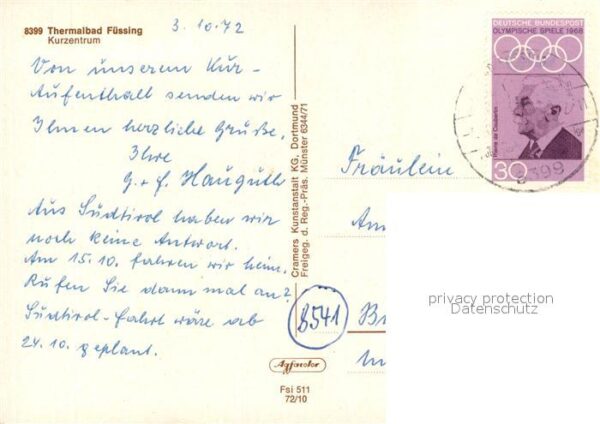 8399 Thermalbad Füssing
Kurzentrum
3.10.72
Von unserem Kur-
Aufenthalt senden wir
Ihnen herzliche Grüße,
Ihre
G. + f. Hauguth
Aus Südtirol haben wir
noch keine Antwort.
Am 15.10. fahren wir heim.
Rufen Sie dann mal an?
Südtirol-Fahrt wäre ab
24.10. geplant.
Cramers Kunstanstalt KG, Dortmund
Freigeg. d. Reg.-Präs. Münster 6344/71
Agfacolor
Fsi 511
72/10
DEUTSCHE BUNDESPOST
OLYMPISCHE SPIELE 1968
Pierre de Coubertin
30
8399
Fräulein
An
8541
privacy protection
Datenschutz